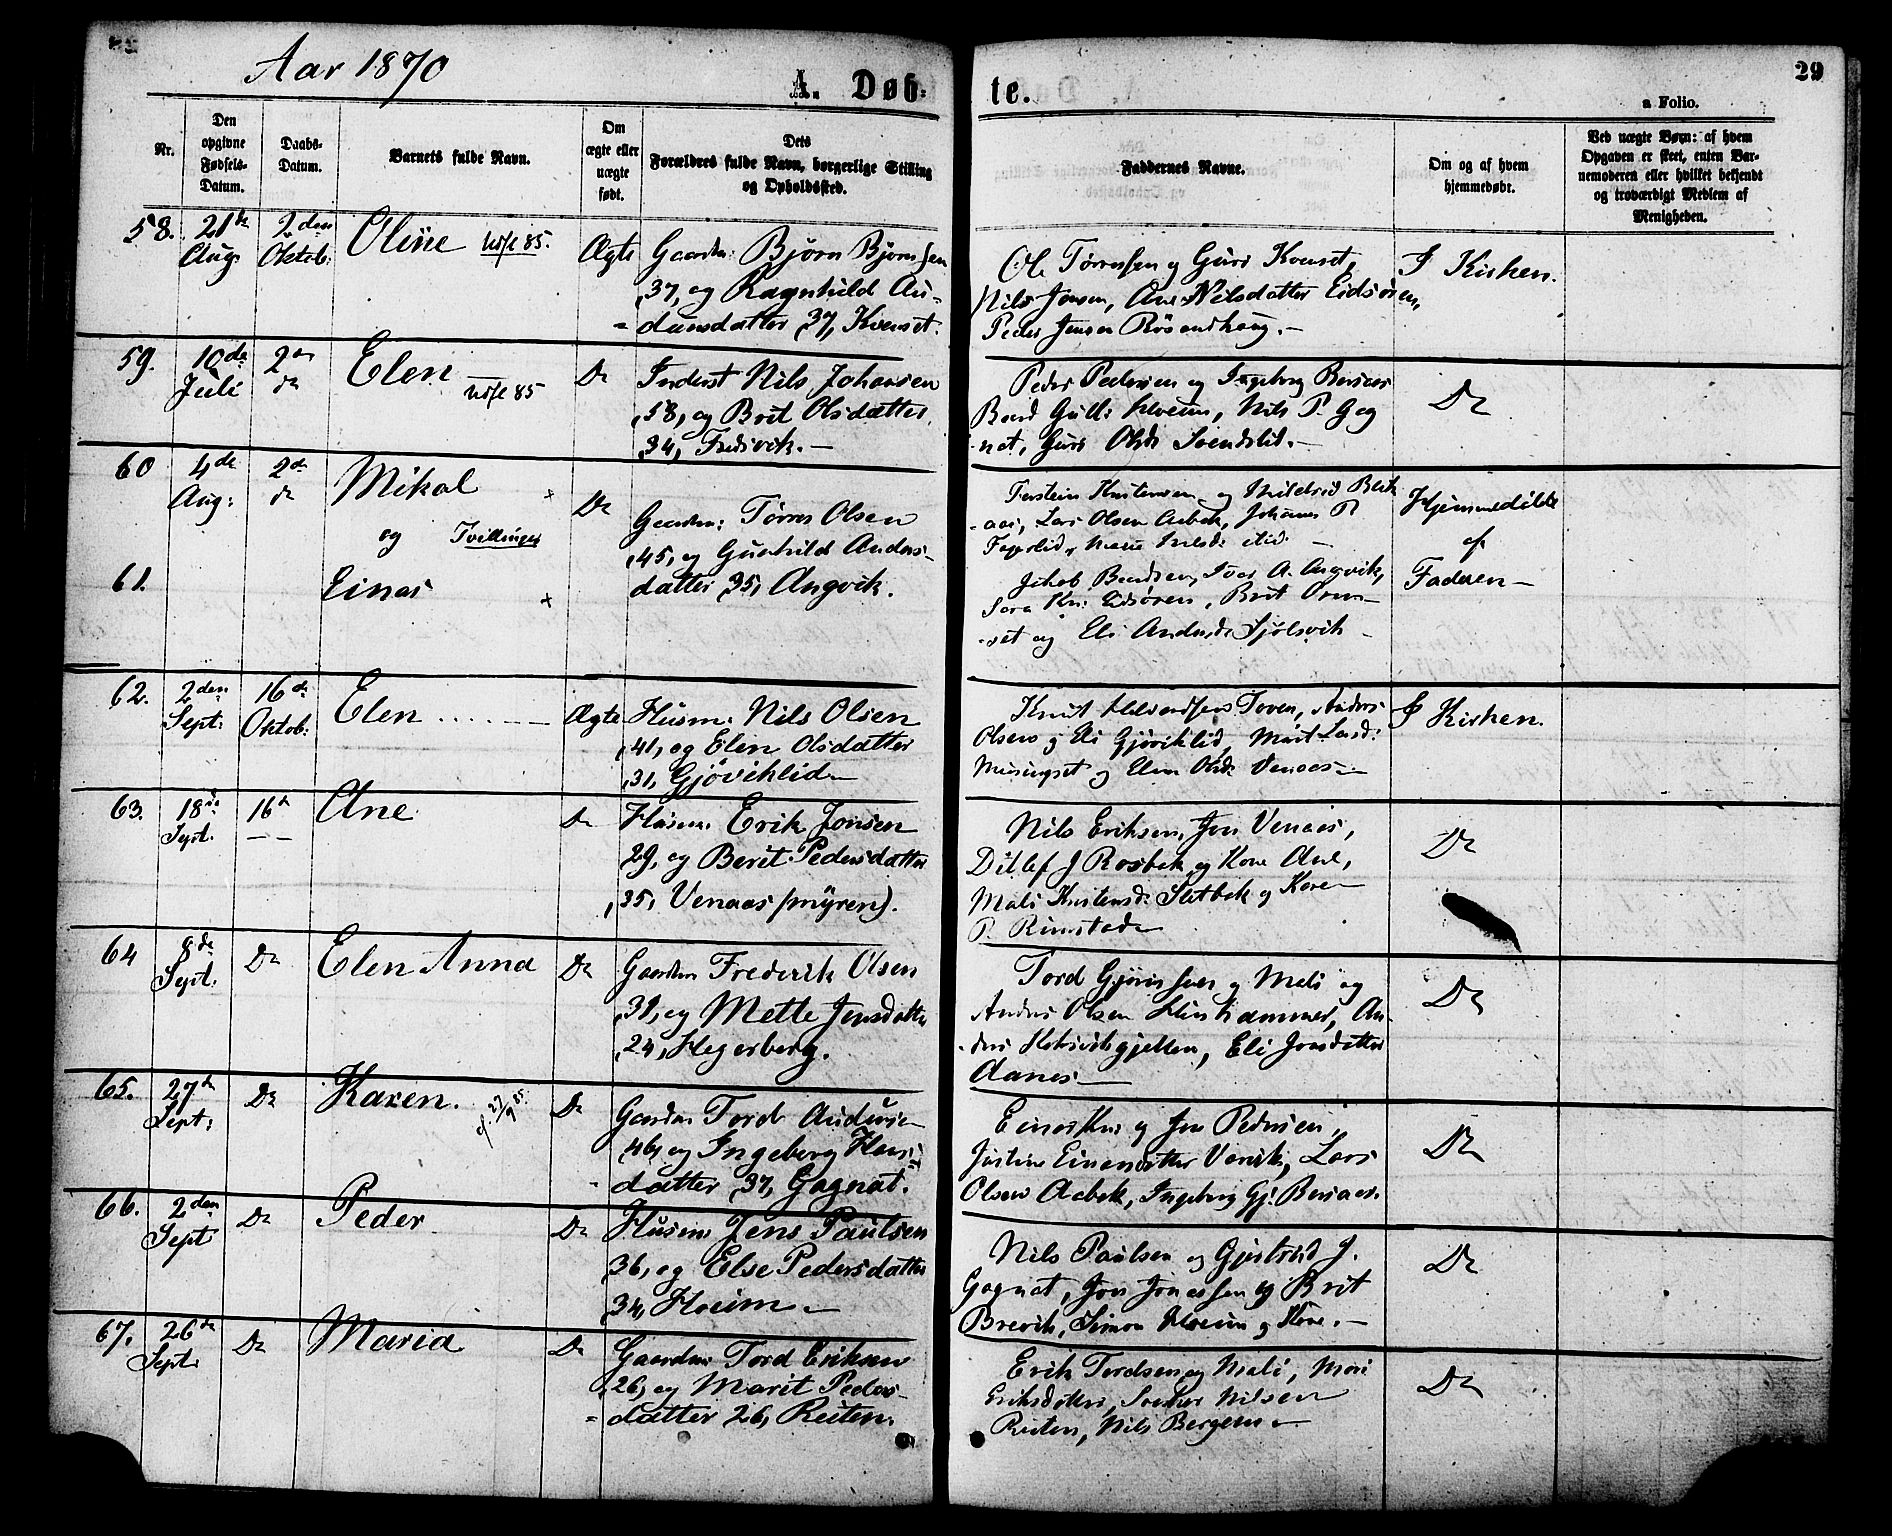 Aar 1870
A. Døb-
te.
29
a Folio.
Nr.
Den
opgivne
Fødsels-
Datum.
Daabs-
Datum.
Barnets fulde Navn.
Om
ægte eller
uægte
født.
Dets
Forældres fulde Navn, borgerlige Stilling
og Opholdssted.
Faddernes Navne.
Om og af hvem
hjemmedøbt.
Ved uægte Børn: af hvem
Opgaven er skeet, enten Bar-
nemoderen eller hvilket bekjendt
og troværdigt Medlem af
Menigheden.
58. 21de Aug: 2den Oktob: Oline 85. Ægte
Gaardm: Bjørn Bjørnsen
37, og Ragnhild Au-
dunsdatter 37, Kvenset.
Ole Tørresen og Guri Kvenset,
Nils Jonsen, Ane Nilsdatter Eidsøren,
Peder Jensen Røsandhaug.-
I Kirken.
59. 10de Juli 2den do Elen 85 Do
Inderst Nils Johansen
58, og Brit Olsdatter
34, Fredsvik.-
Peder Pedersen og Ingeborg Bersaas
Hoeim, Nils P. Gag
nat, Guri Olsd: Svendslid.-
Do
60 4de Aug: 2de do Mikal +
og Tvillinger
61. Einar +
Do
Gaardm: Tørres Olsen
45, og Gunhild Anders-
datter 35, Angvik.
Torstein Kristensen og Mildrid Blik
aas, Lars Olsen Aabak, Johannes P.
Fagerlid,
Jakob Bendsen, Iver A. Angvik,
Sara Kn: Eidsøren, Brit Orm-
set og Eli Andersd: Sjølsvik
Hjemmedøbte
af
Faderen-
62. 2den Sept: 16de Oktob: Elen Ægte
Husm: Nils Olsen
41, og Elen Olsdatter
31, Gjøviklid-
Knut Toven, Anders
Olsen og Eli Gjøviklid, Marit Larsd:
Meisingset og Elen Olsd: Venaas-
I Kirken.
63. 18de Sept. 16de - Ane Do
Husm: Erik Jonsen
29, og Berit Pedersdatter
35, Venaas (myren).
Nils Eriksen, Jon Venaas,
Ditlef J Rosbak og Kone Ane,
Mali Kristensd: Sletbak og Karen
P. Rimstad-
Do
64 8de Sept. Do Elen Anna Do
Gaardm Frederik Olsen
39, og Mette Jensdatter
24, Hegerberg.
Tord Gjørisen og Mali og
Anders Olsen Hinshammer, An-
ders Hoksvikgjelten, Eli Jonsdatter
Aanes-
Do
65. 27de Sept: Do Karen. cf. 27/9 85. Do
Gaardm Tord Andersen
46, og Ingeborg Hans-
datter 37, Gagnat.
Einar Kn: og Jon Pedersen,
Justine Einarsdatter Vaavik, Lars
Olsen Aabak, Ingeborg Gj. Bersaas.
Do
66. 2den Sept Do Peder Do
Husm: Jens Paulsen
36, og Else Pedersdatter
34, Hoeim-
Nils Paulsen og Gjertrud J.
Gagnat, Jon Jonassen og Brit
Brevik, Simon Hoeim og Kone.-
Do
67. 26de Sept: Do Maria Do
Gaardm: Tord Eriksen
26, og Marit Peders-
datter 26, Reiten.
Erik Tordsen og Mali, Mari
Eriksdatter, Nilsen
Reiten, Nils Bergem-
Do